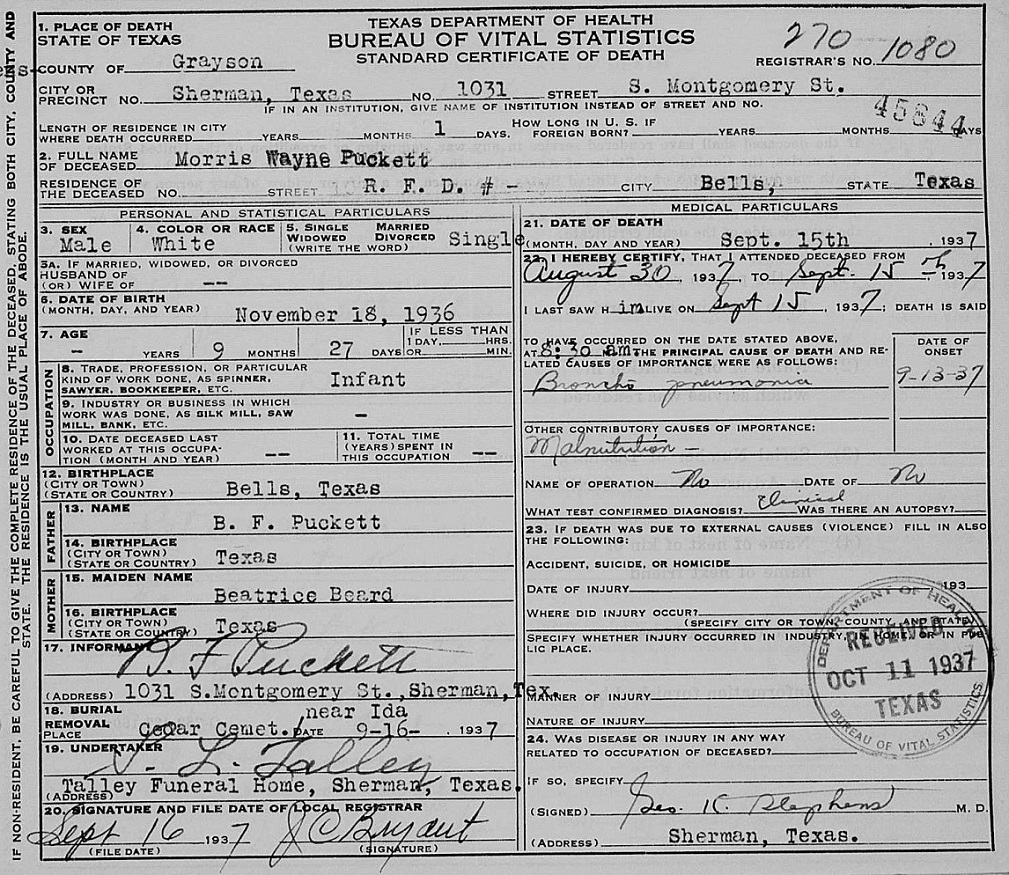 TEXAS DEPARTMENT OF HEALTH
BUREAU OF VITAL STATISTICS
STANDARD CERTIFICATE OF DEATH
270 1080
REGISTRAR'S NO.
1. PLACE OF DEATH
STATE OF TEXAS
COUNTY OF Grayson
CITY OR PRECINCT NO. Sherman, Texas NO. 1031 STREET S. Montgomery St.
IF IN AN INSTITUTION, GIVE NAME OF INSTITUTION INSTEAD OF STREET AND NO.
45644
LENGTH OF RESIDENCE IN CITY WHERE DEATH OCCURRED YEARS MONTHS 1 DAYS. HOW LONG IN U. S. IF FOREIGN BORN? YEARS MONTHS DAYS
2. FULL NAME OF DECEASED Morris Wayne Puckett
RESIDENCE OF THE DECEASED NO. STREET R. F. D. # - CITY Bells, STATE Texas
PERSONAL AND STATISTICAL PARTICULARS
3. SEX Male
4. COLOR OR RACE White
5. SINGLE MARRIED WIDOWED DIVORCED (WRITE THE WORD) Single
3A. IF MARRIED, WIDOWED, OR DIVORCED
HUSBAND OF
(OR) WIFE OF --
6. DATE OF BIRTH
(MONTH, DAY, AND YEAR) November 18, 1936
7. AGE - YEARS 9 MONTHS 27 DAYS
IF LESS THAN 1 DAY, HRS. OR MIN.
OCCUPATION
8. TRADE, PROFESSION, OR PARTICULAR KIND OF WORK DONE, AS SPINNER, SAWYER, BOOKKEEPER, ETC. Infant
9. INDUSTRY OR BUSINESS IN WHICH WORK WAS DONE, AS SILK MILL, SAW MILL, BANK, ETC. -
10. DATE DECEASED LAST WORKED AT THIS OCCUPATION (MONTH AND YEAR) --
11. TOTAL TIME (YEARS) SPENT IN THIS OCCUPATION --
12. BIRTHPLACE
(CITY OR TOWN)
(STATE OR COUNTRY) Bells, Texas
FATHER
13. NAME B. F. Puckett
14. BIRTHPLACE
(CITY OR TOWN)
(STATE OR COUNTRY) Texas
MOTHER
15. MAIDEN NAME Beatrice Beard
16. BIRTHPLACE
(CITY OR TOWN)
(STATE OR COUNTRY) Texas
17. INFORMANT B. F Puckett
(ADDRESS) 1031 S.Montgomery St.,Sherman,Tex.
18. BURIAL REMOVAL near Ida
PLACE Cedar Cemet. DATE 9-16- , 1937
19. UNDERTAKER
Talley Funeral Home, Sherman, Texas.
(ADDRESS)
20. SIGNATURE AND FILE DATE OF LOCAL REGISTRAR
Sept 16 1937 J C Bryant
(FILE DATE) (SIGNATURE)
MEDICAL PARTICULARS
21. DATE OF DEATH
(MONTH, DAY AND YEAR) Sept. 15th , 1937
22. I HEREBY CERTIFY, THAT I ATTENDED DECEASED FROM
August 30, 1937, TO Sept. 15 th, 1937
I LAST SAW H im ALIVE ON Sept 15, 1937; DEATH IS SAID
TO HAVE OCCURRED ON THE DATE STATED ABOVE,
AT 8:30 am. THE PRINCIPAL CAUSE OF DEATH AND RELATED CAUSES OF IMPORTANCE WERE AS FOLLOWS:
DATE OF ONSET
Broncho pneumonia 9-13-37
OTHER CONTRIBUTORY CAUSES OF IMPORTANCE:
Malnutrition -
NAME OF OPERATION No DATE OF No
WHAT TEST CONFIRMED DIAGNOSIS? Clinical WAS THERE AN AUTOPSY?
23. IF DEATH WAS DUE TO EXTERNAL CAUSES (VIOLENCE) FILL IN ALSO THE FOLLOWING:
ACCIDENT, SUICIDE, OR HOMICIDE
DATE OF INJURY 193
WHERE DID INJURY OCCUR?
(SPECIFY CITY OR TOWN, COUNTY, AND STATE)
SPECIFY WHETHER INJURY OCCURRED IN INDUSTRY, IN HOME, OR IN PUBLIC PLACE.
MANNER OF INJURY
NATURE OF INJURY
24. WAS DISEASE OR INJURY IN ANY WAY RELATED TO OCCUPATION OF DECEASED?
IF SO, SPECIFY
(SIGNED) Geo. K. Stephens M. D.
(ADDRESS) Sherman, Texas.
DEPARTMENT OF HEALTH
RECEIVED
OCT 11 1937
TEXAS
BUREAU OF VITAL STATISTICS
IF NON-RESIDENT, BE CAREFUL TO GIVE THE COMPLETE RESIDENCE OF THE DECEASED, STATING BOTH CITY, COUNTY AND
STATE. THE RESIDENCE IS THE USUAL PLACE OF ABODE.